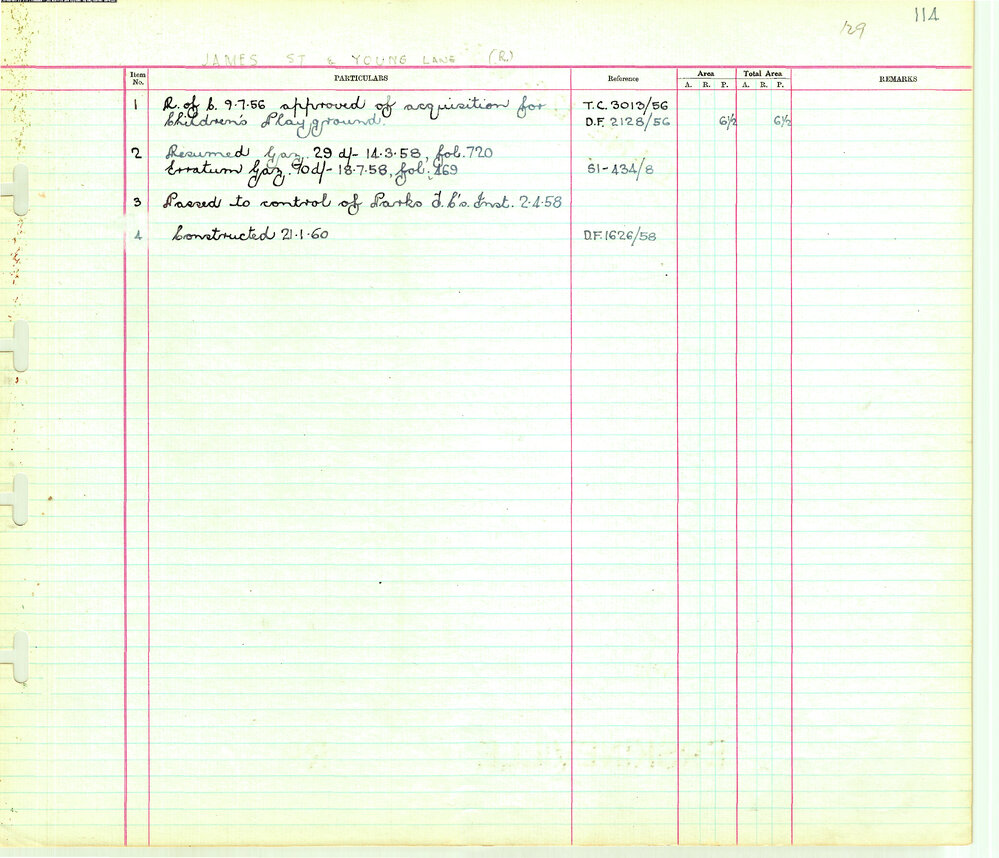 114
129
JAMES ST & YOUNG LANE (R.)
Item No. PARTICULARS Reference Area Total Area REMARKS
A. R. P. A. R. P.
1 R. of C. 9.7.56 approved of acquisition for T.C. 3013/56
Children's Playground. D.F. 2128/56 6½ 6½
2 Resumed Gaz. 29 d/- 14.3.58, fol. 720
Erratum Gaz. 70 d/- 18.7.58, fol. 469 51-434/8
3 Passed to control of Parks T.C's. Inst. 2.4.58
4 Constructed 21.1.60 D.F. 1626/58